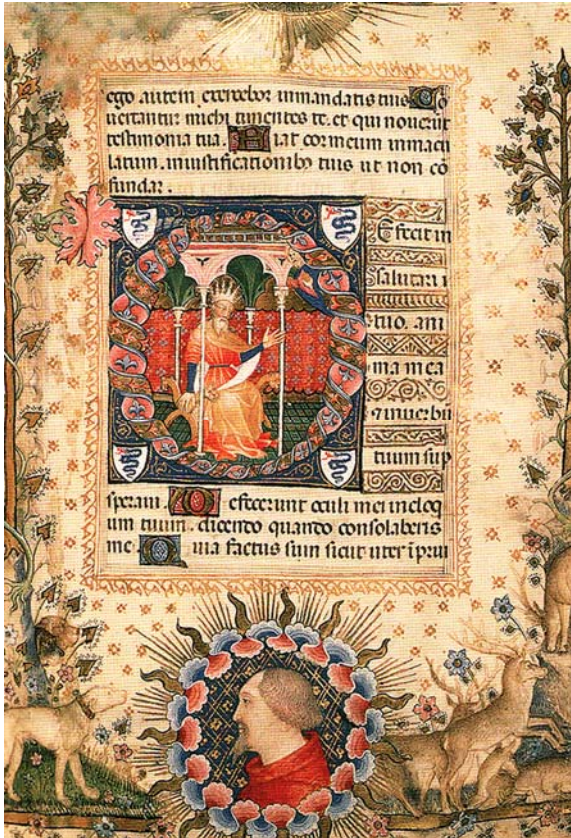 ego autem exercebor in mandatis tuis Co
uertantur michi timentes te. et qui nouerūt
testimonia tua. Fiat cor meum immacu
latum. in iustificationibꝫ tuis ut non cō
fundar.
Defecit in
salutari
tuo. ani
ma mea
in uerbū
tuum sup
speraui. Defecerunt oculi mei in eloq
um tuum. dicento quando consolaberis
me. Quia factus sum sicut uter ī prui